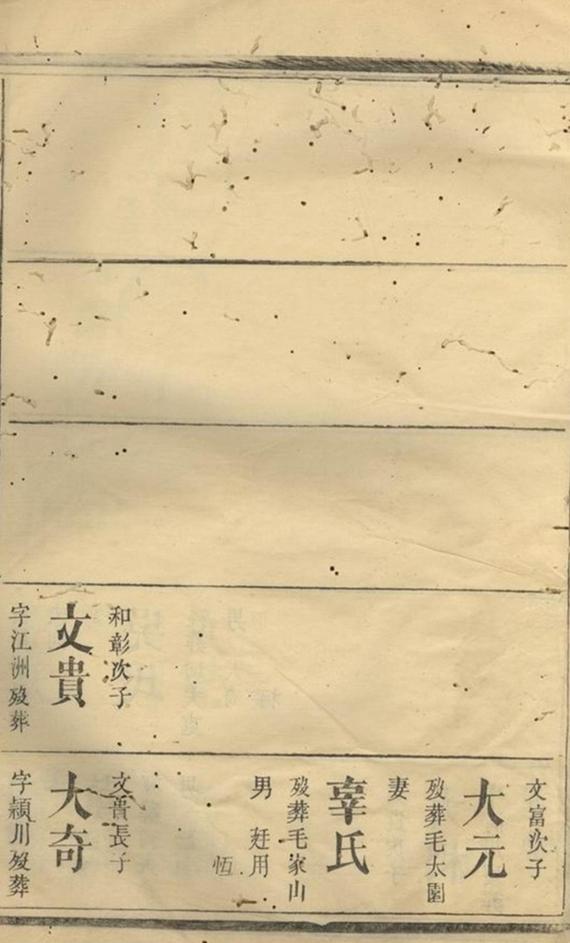 和彰次子
文貴
字江洲歿葬
文富次子
大元
歿葬毛太園
妻
辜氏
歿葬毛家山
男 用
恆
文長子
大奇
字穎川歿葬